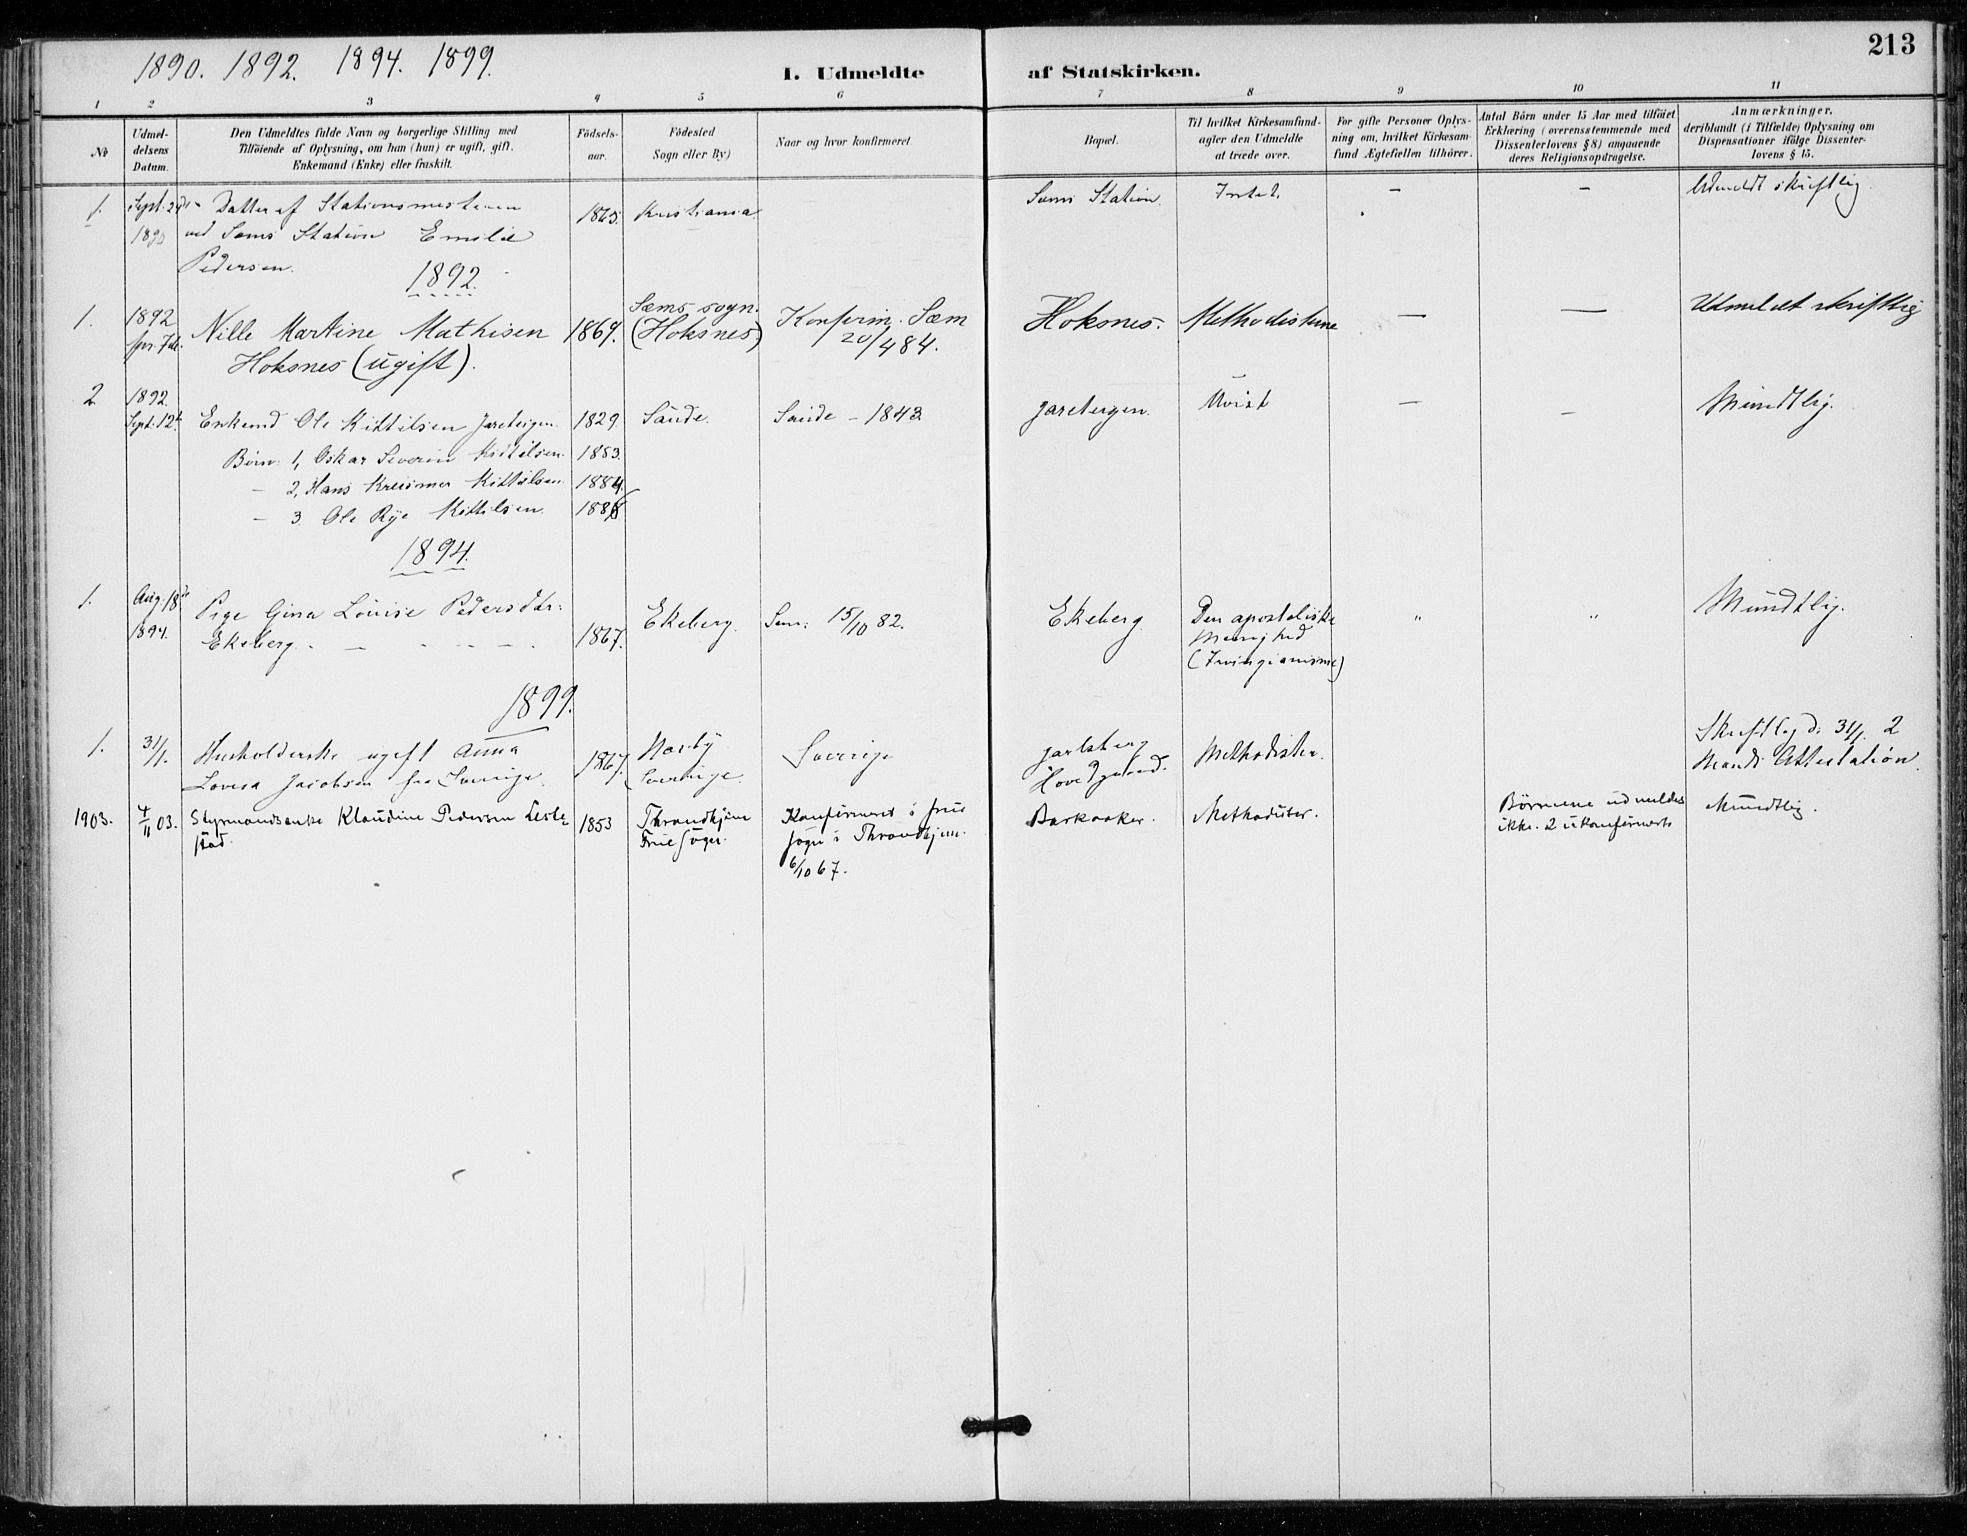 213
1890. 1892. 1894. 1899.
I. Udmeldte af Statskirken.
1 2 3 4 5 6 7 8 9 10 11
No
Udmel-
delsens
Datum.
Den Udmeldtes fulde Navn og borgerlige Stilling med
Tilføiende af Oplysning, om han (hun) er ugift, gift.
Enkemand (Enke) eller fraskilt.
Fødsels-
aar.
Fødested
Sogn eller By)
Naar og hvor konfirmeret.
Bopæl.
Til hvilket Kirkesamfund-
agter den Udmeldte
at træde over.
For gifte Personer Oplys-
ning om, hvilket Kirkesam-
fund Ægtefællen tilhører.
Antal Börn under 15 Aar med tilföiet
Erklæring (overensstemmende med
Dissenterlovens § 8) angaaende
deres Religionsopdragelse.
Anmærkninger,
deriblandt (i Tilfælde) Oplysning om
Dispensationer ifölge Dissenter-
lovens § 15.
1. Datter af Stationsmesteren 1865. Kristiania. Sems Station. Intet. – – Udmeldt skriftlig
1890 ved Sems Station Emilie
Pedersen.
1892.
1892 Sæms sogn.
1. Nille Martine Mathisen 1869. (Hoksnes) Konfirm. Sæm Hoksnes. Methodisterne — — Udmeldt skriftlig
Hoksnes (ugift). 20/4 84.
2 1892.
Sept. 12t Enkemd Ole Kittilsen Jarebergen. 1829. Saude. Saude – 1843. Jarebergen. Uvist — – Mundtlig.
Børn: 1, Oskar Severin Kittilsen. 1883.
– 2, Hans Kittilsen. 1884
– 3. Ole Rye Kittilsen. 188
1894.
1. Aug. 18de Pige Gina Louise Pedersdtr: Ekeberg. Sem: 15/10 82. Ekeberg Den apostoliske " " Mundtlig.
1894. Ekeberg. 1867. Menighed
(Irvingianisme)
1899.
1. 31/1. Husholderske ugift Anna 1867. Sverrige Jarlsberg Methodister. Skriftlig d. 31/1. 2
Lovisa Jacobsen fra Sverrige. Sverrige. Hovedgaard. Mands Attestation.
1903. 4/11 03. Styrmandsenke Klaudine Pedersen 1853 Throndhjem Konfirmeret i Frue Barkaaker. Methodister. Børnene udmeldes Mundtlig.
Frue Sogn. Sogn i Throndhjem. ikke. 2 ukonfirmerte
6/10 67.